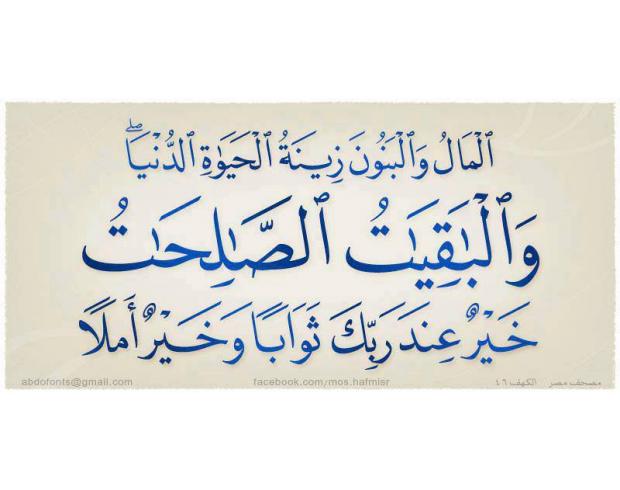 ٱلْمَالُ وَٱلْبَنُونَ زِينَةُ ٱلْحَيَوٰةِ ٱلدُّنْيَاۖ
وَٱلْبَٰقِيَٰتُ ٱلصَّٰلِحَٰتُ
خَيْرٌ عِندَ رَبِّكَ ثَوَابًا وَخَيْرٌ أَمَلًا
مصحف مصر الكهف ٤٦
facebook.com/mos.hafmisr
abdofonts@gmail.com